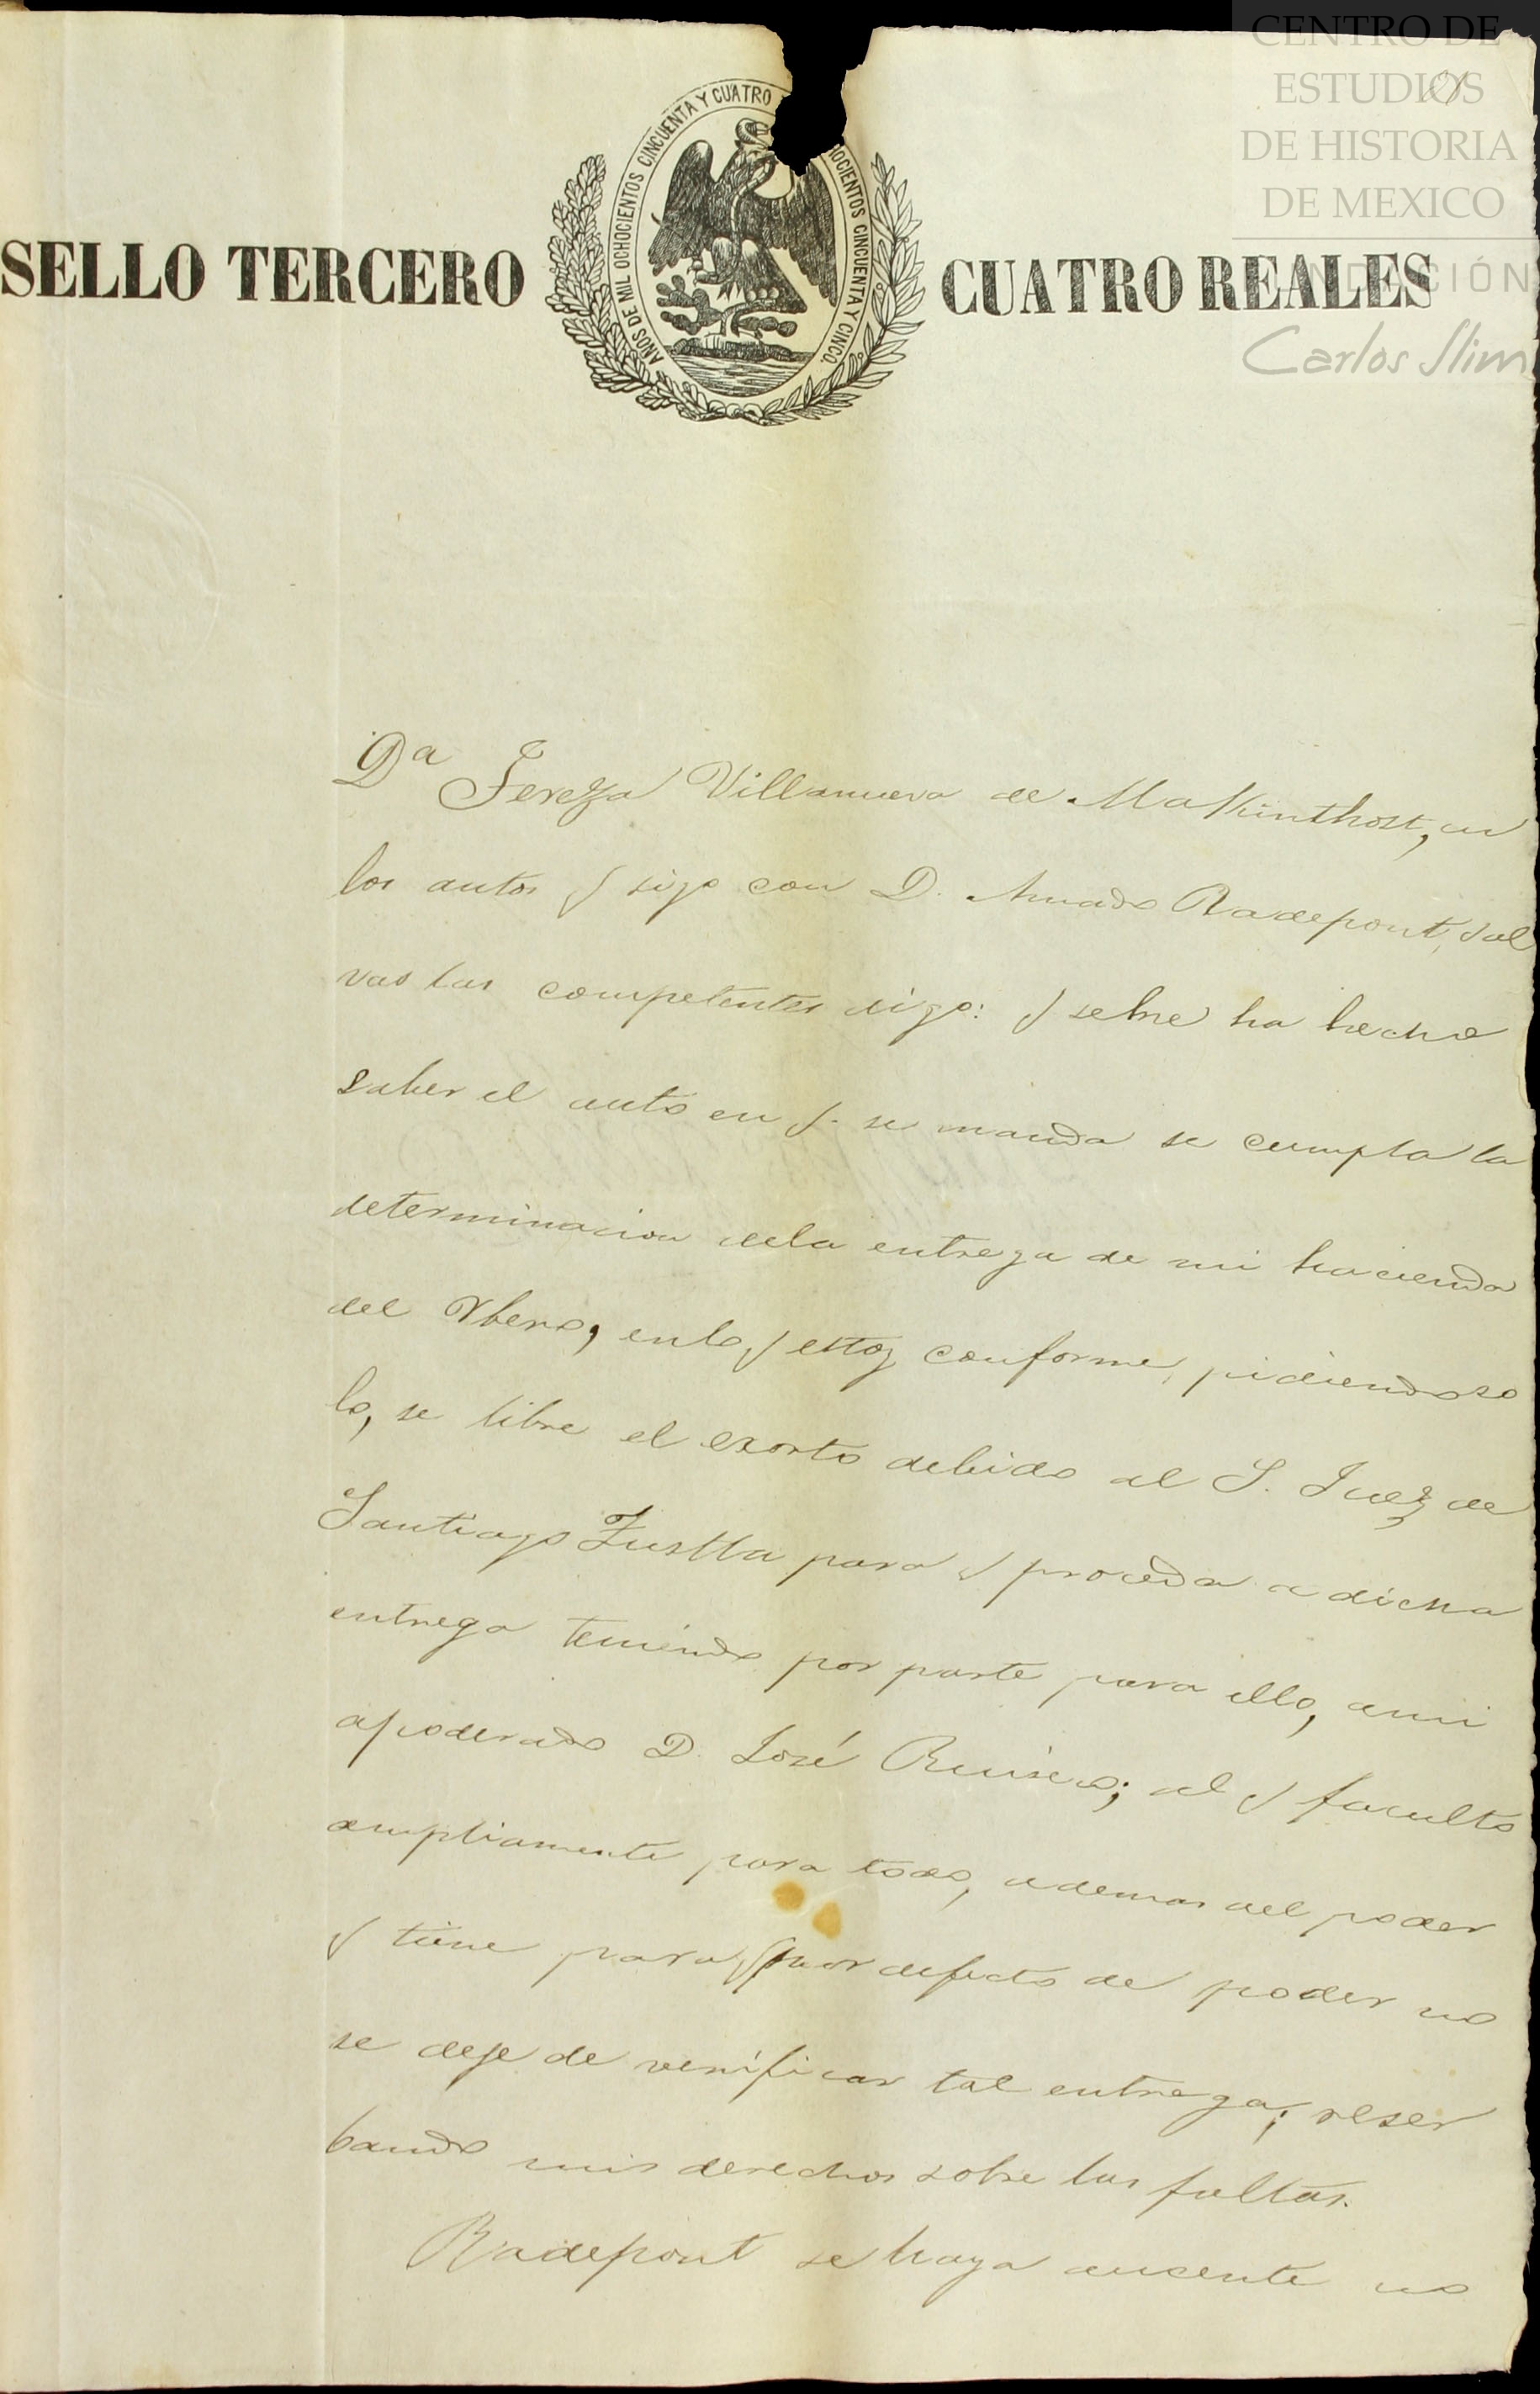 CENTRO DE
ESTUDIOS
DE HISTORIA
DE MEXICO
CIÓN
Carlos Slim
AÑOS DE MIL OCHOCIENTOS CINCUENTA Y CUATRO OCHOCIENTOS CINCUENTA Y CINCO.
SELLO TERCERO CUATRO REALES
Dª Tereza Villanueva de Makinthost, en
los autos q sigo con D. Amado Radepont, sal
vas las competentes digo: q seme ha hecho
saber el auto en q. se manda se cumpla la
determinacion dela entrega de mi hacienda
del Ybero, enlo q estoy conforme, pidiendo so
lo, se libre el exorto debido al S. Juez de
Santiago Tustla para q proceda a dicha
entrega teniendo por parte para ello, ami
apoderado D. José Ruiseco; al q faculto
ampliamente para todo, ademas del poder
q tiene para q por defecto de poder no
se deje de verificar tal entrega; reser
bando mis derechos sobre las faltas.
Radepont se haya ausente no